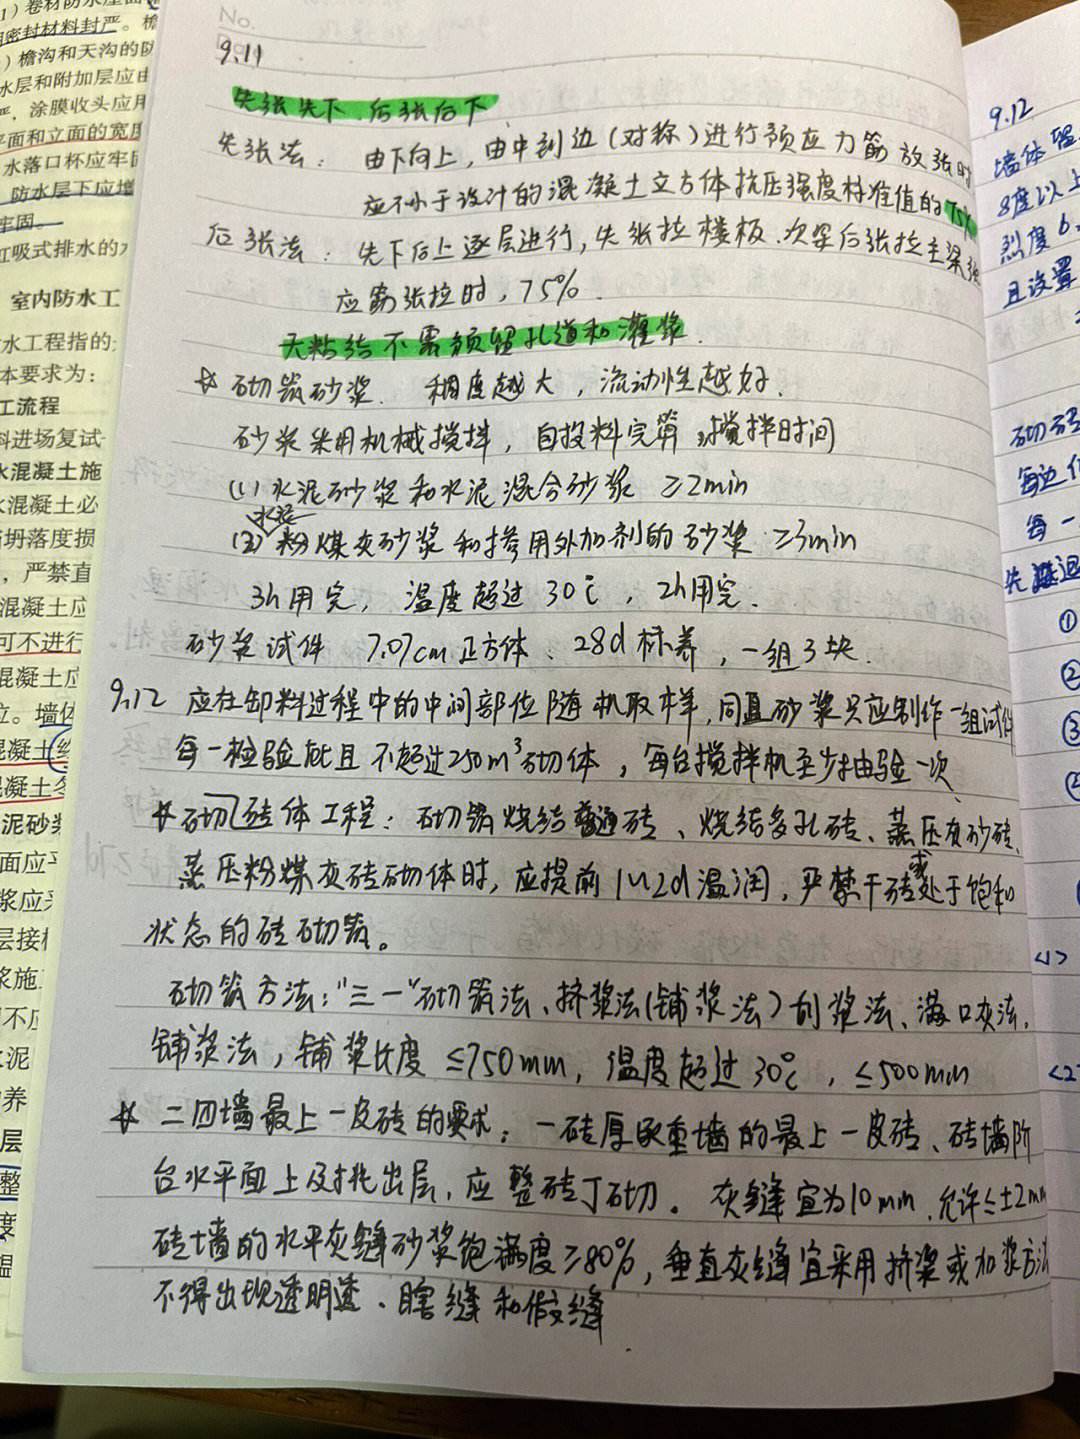 1）卷材防水屋面
密封材料封严。檐
）檐沟和天沟的防
水层和附加层应由
严，涂膜收头应用
平面和立面的宽度
水落口杯应牢固
防水层下应增
牢固。
虹吸式排水的
室内防水工
水工程指的
本要求为：
工流程
料进场复试
水混凝土施
水混凝土必
坍落度损
，严禁直
混凝土应
可不进行
混凝土应
位。墙体
混凝土终
混凝土冬
泥砂浆
面应平
浆应采
层接
浆施
不应
水泥
养
层
整
度
温
No.
9.11
先张先下，后张后下
先张法：由下向上，由中到边（对称）进行预应力筋放张时
应不小于设计的混凝土立方体抗压强度标准值的75%
后张法：先下后上逐层进行，先张拉楼板、次梁后张拉主梁
应筋张拉时，75%.
无粘结不需预留孔道和灌浆.
☆砌筑砂浆. 稠度越大，流动性越好.
砂浆采用机械搅拌，自投料完算，搅拌时间
(1)水泥砂浆和水泥混合砂浆 ≥2min
水泥
(2)粉煤灰砂浆和掺用外加剂的砂浆 ≥3min
3h用完，温度超过30℃，2h用完.
砂浆试件 7.07cm正方体、28d标养，一组3块.
9.12 应在卸料过程中的中间部位随机取样，同且砂浆只应制作一组试件
每一检验批且不超过250m³砌体，每台搅拌机至少抽验一次
☆砌砖体工程：砌筑烧结普通砖、烧结多孔砖、蒸压灰砂砖、
蒸压粉煤灰砖砌体时，应提前1~2d温润，严禁干砖或处于饱和
状态的砖砌筑。
砌筑方法："三一"砌筑法、挤浆法(铺浆法)刮浆法、满口灰法.
铺浆法，铺浆长度≤750mm，温度超过30℃，≤500mm
☆二四墙最上一皮砖的要求：一砖厚承重墙的最上一皮砖、砖墙阶
台水平面上及挑出层，应整砖丁砌。灰缝宜为10mm，允许≤±2mm
砖墙的水平灰缝砂浆饱满度≥80%，垂直灰缝宜采用挤浆或加浆方法
不得出现透明缝、瞎缝和假缝.
9.12
墙体留
8度以上
烈度6、
且设置
砌砖
每边
每一
先退
①
②
③
<1>